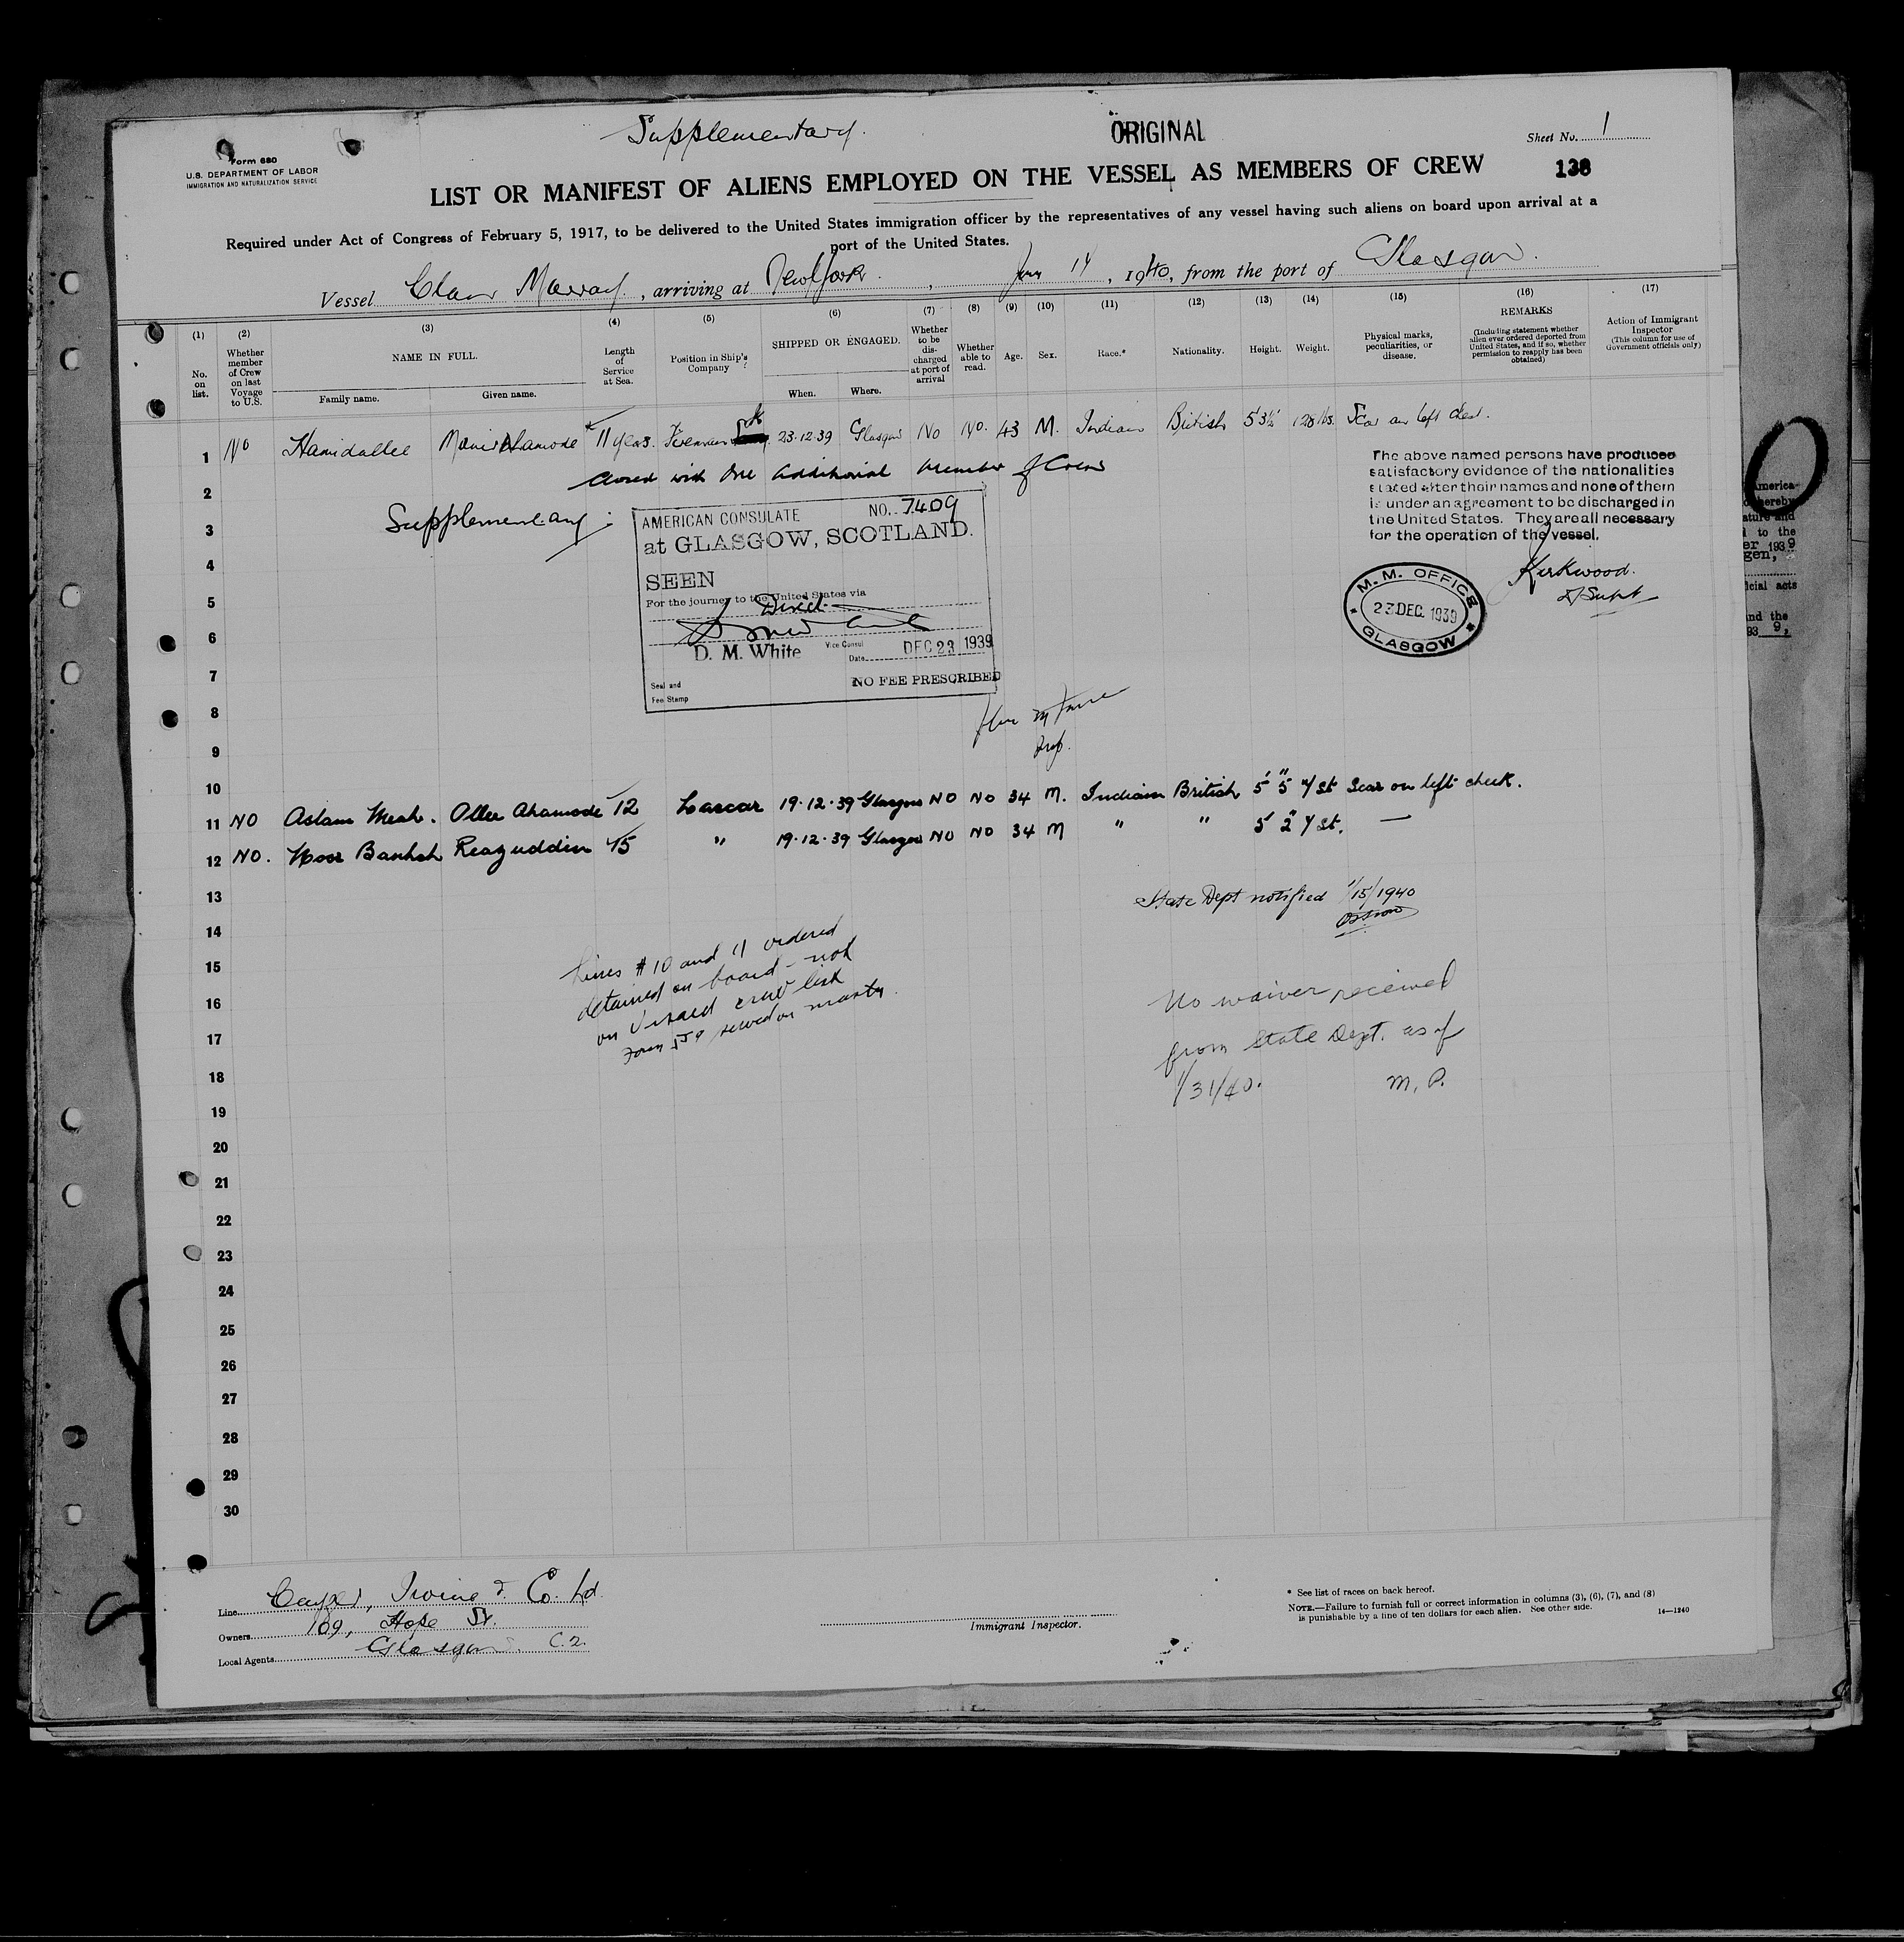 Supplementary.
ORIGINAL
Sheet No. 1
Form 680
U.S. DEPARTMENT OF LABOR
IMMIGRATION AND NATURALIZATION SERVICE
138
LIST OR MANIFEST OF ALIENS EMPLOYED ON THE VESSEL AS MEMBERS OF CREW
Required under Act of Congress of February 5, 1917, to be delivered to the United States immigration officer by the representatives of any vessel having such aliens on board upon arrival at a
port of the United States.
Vessel Clan Murray, arriving at New York, Jany 14, 1940, from the port of Glasgow.
(1) (2) (3) (4) (5) (6) (7) (8) (9) (10) (11) (12) (13) (14) (15) (16) (17)
No. on list.
Whether member of Crew on last Voyage to U.S.
NAME IN FULL.
Family name. Given name.
Length of Service at Sea.
Position in Ship's Company
SHIPPED OR ENGAGED.
When. Where.
Whether to be discharged at port of arrival
Whether able to read.
Age.
Sex.
Race.*
Nationality.
Height.
Weight.
Physical marks, peculiarities, or disease.
REMARKS
(Including statement whether alien ever ordered deported from United States, and if so, whether permission to reapply has been obtained)
Action of Immigrant Inspector
(This column for use of Government officials only)
1 No Hamidallee 11 years. Fireman 23.12.39 Glasgow No No. 43 M. Indian British 5'3½ 128 lbs. Scar on left chest.
Closed with One additional Member of Crew
2
Supplementary:
3
4
5
6
7
8
9
AMERICAN CONSULATE NO. 7409
at GLASGOW, SCOTLAND.
SEEN
For the journey to the United States via
Direct
D. M. White Vice Consul
Date DEC 23 1939
Seal and
Fee Stamp
NO FEE PRESCRIBED
The above named persons have produced
satisfactory evidence of the nationalities
stated after their names and none of them
is under an agreement to be discharged in
the United States. They are all necessary
for the operation of the vessel.
Kirkwood.
D/Supt
M. M. OFFICE
23 DEC. 1939
GLASGOW
10
11 NO Aslam Meah. Ollee Ahamode 12 Lascar 19.12.39 Glasgow NO NO 34 M. Indian British 5' 5" 9 St Scar on left cheek.
12 NO. Noor Bauksh Reazuddin 15 " 19.12.39 Glasgow NO NO 34 M " " 5' 2" 9 St. —
13
State Dept notified 1/15/1940
14
15
16
17
18
Lines # 10 and 11 ordered
detained on board - not
on visaed crew list
Form 559 served on master.
No waiver received
from State Dept. as of
1/31/40. M. P.
19
20
21
22
23
24
25
26
27
28
29
30
Line Cayzer, Irvine & Co. Ld.
Owners 109, Hope St.
Local Agents Glasgow C.2.
Immigrant Inspector.
* See list of races on back hereof.
NOTE.—Failure to furnish full or correct information in columns (3), (6), (7), and (8)
is punishable by a fine of ten dollars for each alien. See other side.
14—1240